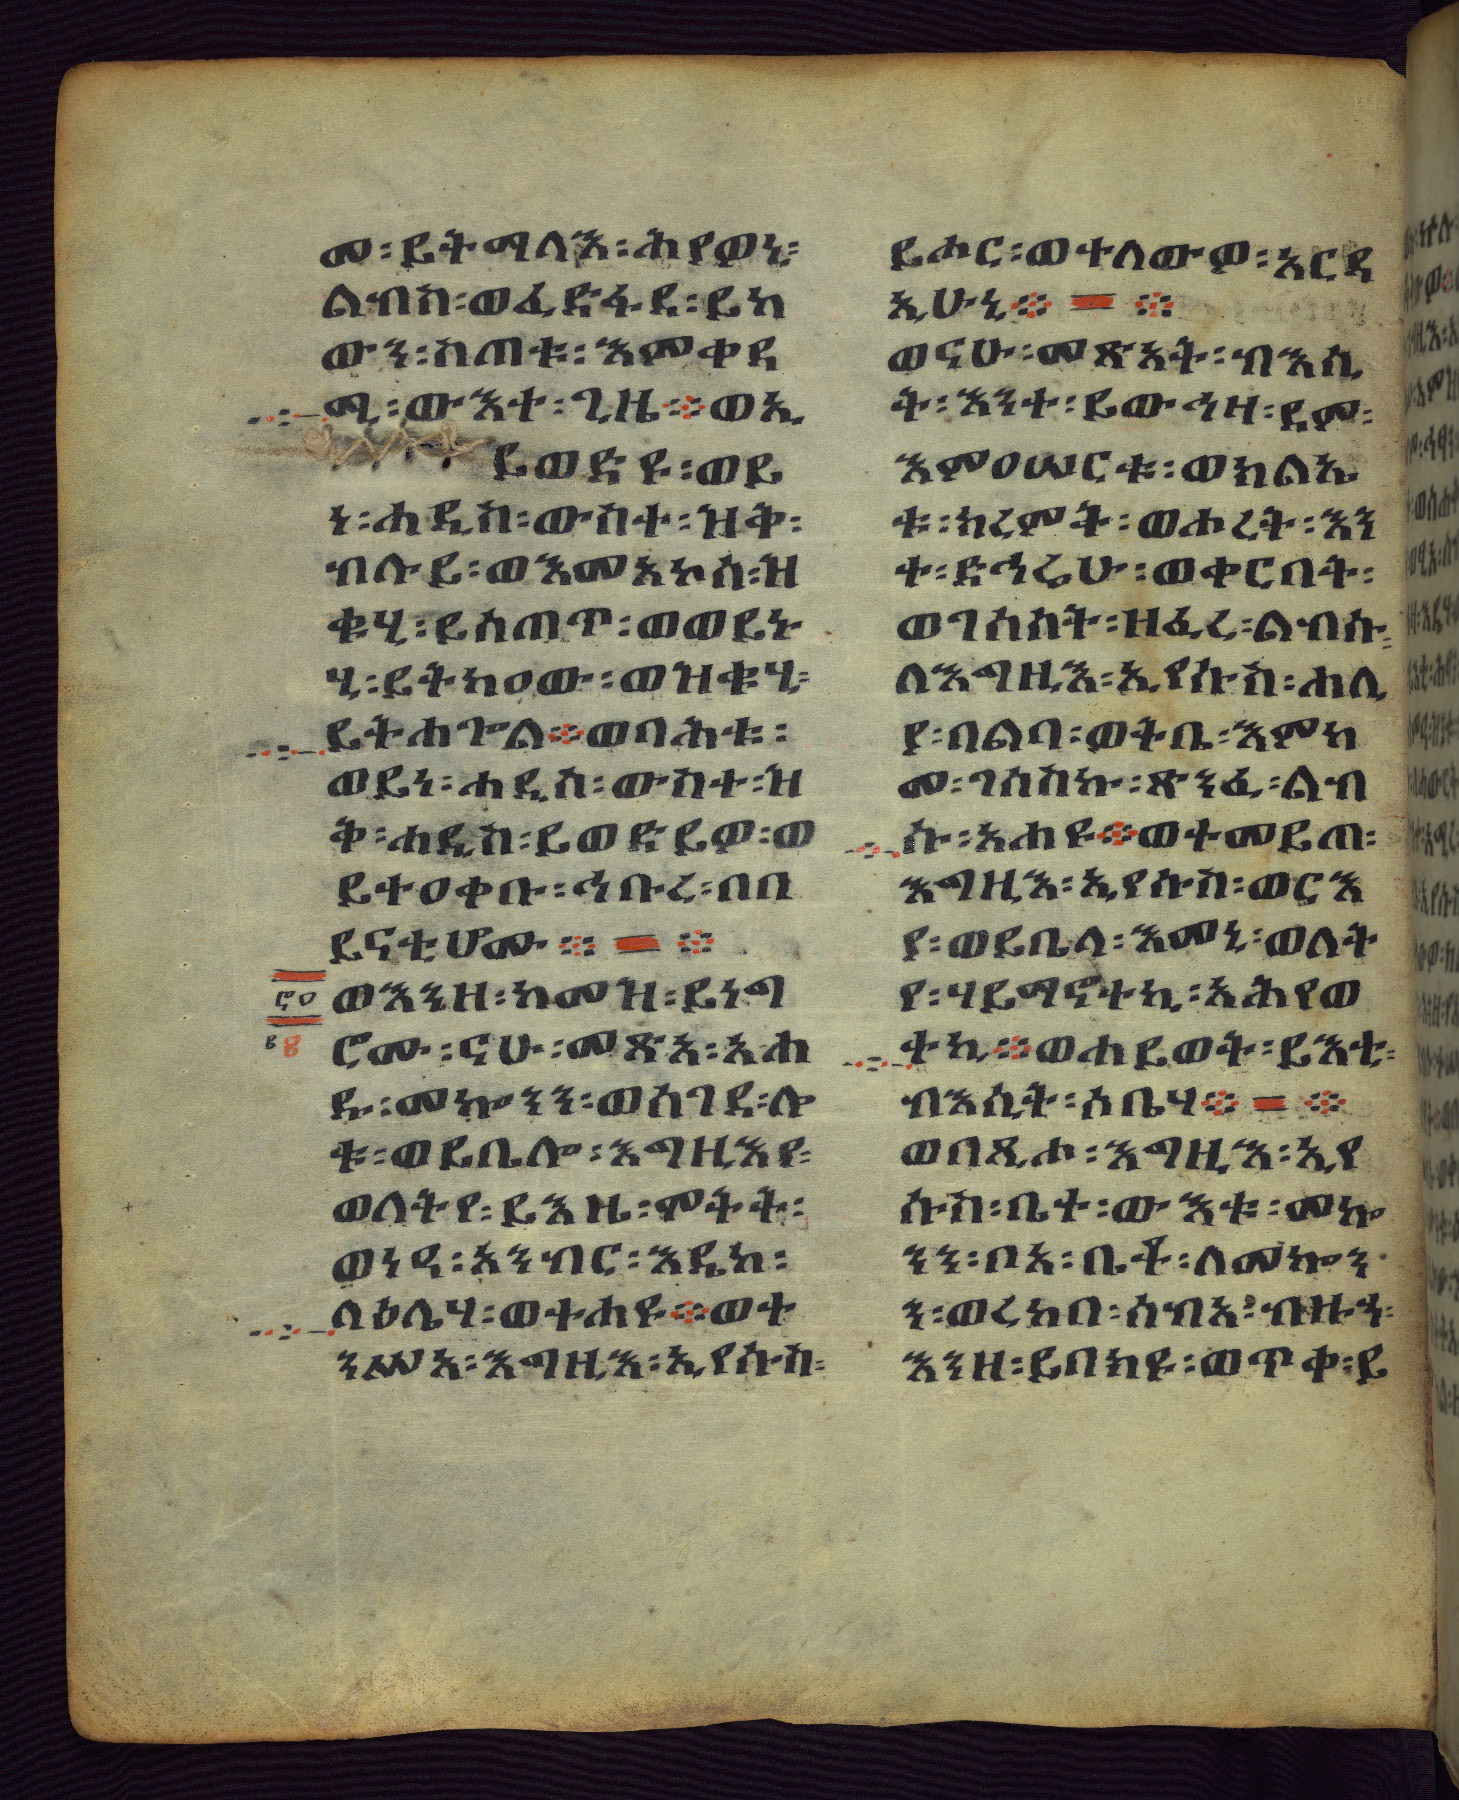 መ፡ይትማላእ፡ሕየወኒ፡
ልብስ፡ወፈድፋደ፡ይከ
ውን፡ስጠቱ፡እምቀዳ
ሚ፡ውእተ፡ጊዜ፨ወኢ
ይወድዩ፡ወይ
ነ፡ሐዲስ፡ውስተ፡ዝቅ፡
ብሉይ፡ወእመአኮሰ፡ዝ
ቁሂ፡ይሰጠጥ፡ወወይኑ
ሂ፡ይትከዐው፡ወዝቁሂ፡
ይትሐጐል፨ወባሕቱ፡
ወይነ፡ሐዲሰ፡ውስተ፡ዝ
ቅ፡ሐዲስ፡ይወድይዎ፡ወ
ይተዐቀቡ፡ኅቡረ፡በበ
ይናቲሆሙ፨ = ፨
ወእንዘ፡ከመዝ፡ይነግ
ሮሙ፡ናሁ፡መጽአ፡አሐ
ዱ፡መኰንን፡ወሰገደ፡ሎ
ቱ፡ወይቤሎ፡እግዚእየ፡
ወለትየ፡ይእዜ፡ሞትት፡
ወነዓ፡አንብር፡እዴከ፡
ላዕሌሃ፡ወተሐዩ፨ወተ
ንሥአ፡እግዚእ፡ኢየሱስ፡
ይሐር፡ወተለውዎ፡አርዳ
ኢሁኒ፨ = ፨
ወናሁ፡መጽአት፡ብእሲ
ት፡እንተ፡ይውኅዛ፡ደም፡
እምዐሠርቱ፡ወክልኤ
ቱ፡ክረምት፡ወሐረት፡እን
ተ፡ድኅሬሁ፡ወቀርበት፡
ወገሰሰት፡ዘፈረ፡ልብሱ፡
ለእግዚእ፡ኢየሱስ፡ሐሊ
ያ፡በልባ፡ወትቤ፡እምከ
መ፡ገሰስኩ፡ጽንፈ፡ልብ
ሱ፡አሐዩ፨ወተመይጠ፡
እግዚእ፡ኢየሱስ፡ወርእ
ያ፡ወይቤላ፡እመኒ፡ወለት
የ፡ሃይማኖትኪ፡አሕየወ
ተኪ፨ወሐይወት፡ይእቲ፡
ብእሲት፡ሶቤሃ፨ = ፨
ወበጺሖ፡እግዚእ፡ኢየ
ሱስ፡ቤተ፡ውእቱ፡መኰ
ንን፡ቦአ፡ቤቶ፡ለመኰን
ን፡ወረከበ፡ሰብአ፡ብዙኀ፡
እንዘ፡ይበክዩ፡ወጥቀ፡ይ